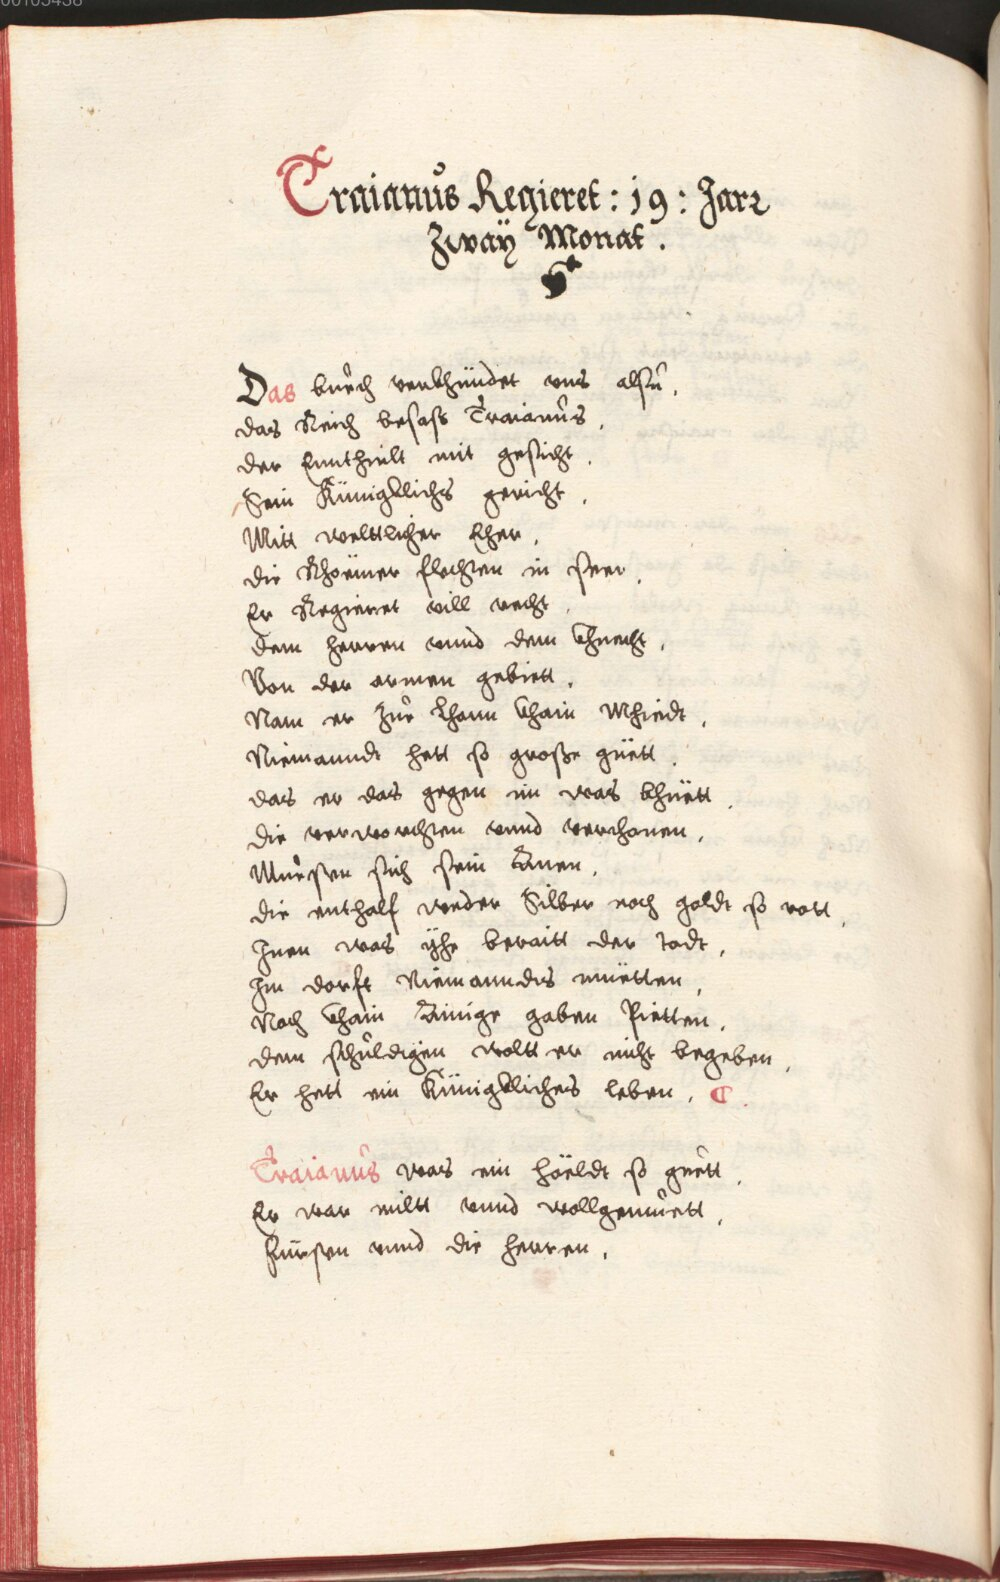 Traianus Regieret : 19 : Jar
Zwaÿ Monat .
Das buech verkhündet vns alsu .
das Reich besass Traianus .
der Ennthielt mit gesicht .
Sein Künigklichs gericht .
Mitt welttlicher Eher .
die Rhoëmer flechten in seer .
Er Regieret vill recht .
dem herren vnnd dem khnecht .
Von der armen gebiett .
Nam er Zur khain Mhiedt .
Niemanndt hett so grosse güett .
das er das gegen im was khüett .
die verworchten vnnd verchonen .
Muesten sich sein Ånen .
die enthalf weder Silber noch goldt so rott .
Inen was ÿhe beraitt der todt .
Im dorft Niemanndts müetten .
Noch khain Ainige gaben Pietten .
dem schuldigen woltt er nicht begeben .
Er hett ein Künigkliches leben .
Traianus was ein höeldt so guett .
Er war miltt vnnd wollgemuett .
Fürsten vnnd die herren .